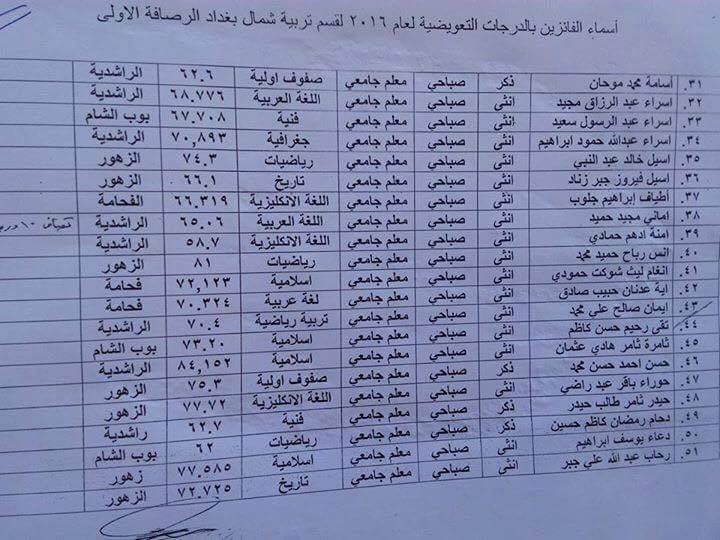 أسماء الفائزين بالدرجات التعويضية لعام ٢٠١٦ لقسم تربية شمال بغداد الرصافة الاولى
٣١. اسامة محمد موحان ذكر صباحي معلم جامعي صفوف اولية ٦٢.٦ الراشدية
٣٢. اسراء عبد الرزاق مجيد انثى صباحي معلم جامعي اللغة العربية ٦٨.٧٧٦ الراشدية
٣٣. اسراء عبد الرسول سعيد انثى صباحي معلم جامعي فنية ٦٧.٧٠٨ بوب الشام
٣٤. اسراء عبدالله حمود ابراهيم انثى صباحي معلم جامعي جغرافية ٧٠,٨٩٣ الراشدية
٣٥. اسيل خالد عبد النبي انثى صباحي معلم جامعي رياضيات ٧٤.٣ الزهور
٣٦. اسيل فيروز جبر زناد انثى صباحي معلم جامعي تاريخ ٦٦.١ الزهور
٣٧. اطياف ابراهيم جلوب انثى صباحي معلم جامعي اللغة الانكليزية ٦٦.٣١٩ الفحامة
٣٨. اماني مجيد حميد انثى صباحي معلم جامعي اللغة العربية ٦٥.٠٦ الراشدية
٣٩. امنة ادهم حمادي انثى صباحي معلم جامعي اللغة الانكليزية ٥٨.٧ الراشدية
٤٠. انس رباح حميد محمد انثى صباحي معلم جامعي رياضيات ٨١ الزهور
٤١. انغام ليث شوكت حمودي انثى صباحي معلم جامعي اسلامية ٧٢,١٢٣ فحامة
٤٢. اية عدنان حبيب صادق انثى صباحي معلم جامعي لغة عربية ٧٠.٣٢٤ فحامة
٤٣. ايمان صالح علي محمد انثى صباحي معلم جامعي تربية رياضية ٧٠.٤ الراشدية
٤٤. تقى رحيم حسن كاظم انثى صباحي معلم جامعي اسلامية ٧٣.٢٠ بوب الشام
٤٥. ثامرة ثامر هادي عثمان انثى صباحي معلم جامعي اسلامية ٨٤,١٥٢ الراشدية
٤٦. حسن احمد حسن محمد ذكر صباحي معلم جامعي صفوف اولية ٧٥.٣ الزهور
٤٧. حوراء باقر عبد راضي انثى صباحي معلم جامعي اللغة الانكليزية ٧٧.٧٢ الزهور
٤٨. حيدر ثامر طالب حيدر ذكر صباحي معلم جامعي فنية ٦٢.٧ راشدية
٤٩. دحام رمضان كاظم حسين ذكر صباحي معلم جامعي رياضيات ٦٢ بوب الشام
٥٠. دعاء يوسف ابراهيم انثى صباحي معلم جامعي اسلامية ٧٧.٥٨٥ زهور
٥١. رحاب عبد الله علي جبر انثى صباحي معلم جامعي تاريخ ٧٢.٧٢٥ الزهور